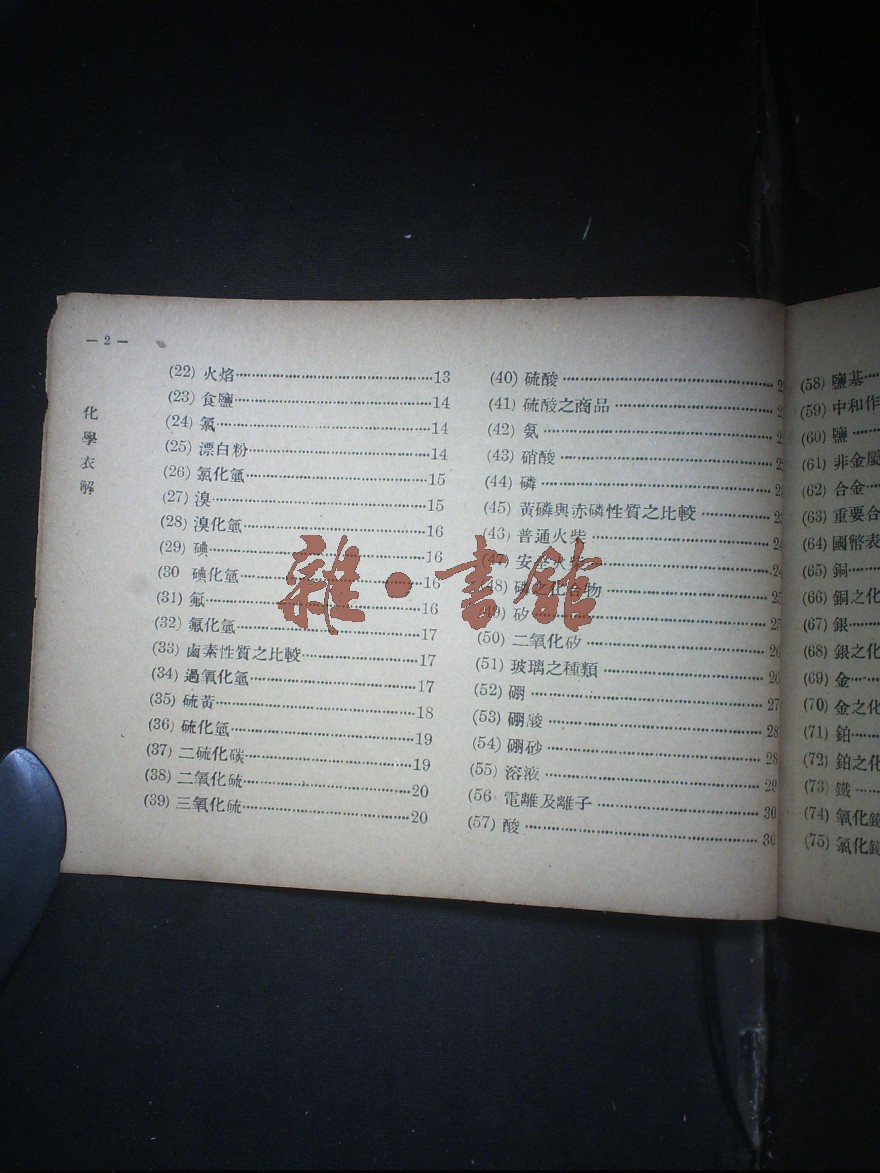 — 2 —
化學表解
(22) 火焰……13
(23) 食鹽……14
(24) 氯……14
(25) 漂白粉……14
(26) 氯化氫……15
(27) 溴……15
(28) 溴化氫……16
(29) 碘……16
(30 碘化氫……16
(31) 氟……16
(32) 氟化氫……17
(33) 鹵素性質之比較……17
(34) 過氧化氫……17
(35) 硫黃……18
(36) 硫化氫……19
(37) 二硫化碳……19
(38) 二氧化硫……20
(39) 三氧化硫……20
(40) 硫酸……2
(41) 硫酸之商品……2
(42) 氨……2
(43) 硝酸……2
(44) 磷……2
(45) 黃磷與赤磷性質之比較……2
(46) 普通火柴……24
(47) 安全火柴……24
(48) 磷之化合物……25
(49) 矽……25
(50) 二氧化矽……26
(51) 玻璃之種類……26
(52) 硼……27
(53) 硼酸……28
(54) 硼砂……28
(55) 溶液……29
(56 電離及離子……30
(57) 酸……30
(58) 鹽基……
(59) 中和作
(60) 鹽……
(61) 非金屬
(62) 合金……
(63) 重要合
(64) 國幣表
(65) 銅……
(66) 銅之化
(67) 銀……
(68) 銀之化
(69) 金……
(70) 金之化
(71) 鉑……
(72) 鉑之化
(73) 鐵……
(74) 氧化
(75) 氯化
雜·書館